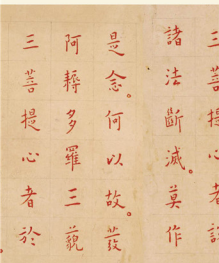 三菩提心者說
諸法斷滅。莫作
是念。何以故。發
阿耨多羅三藐
三菩提心者於